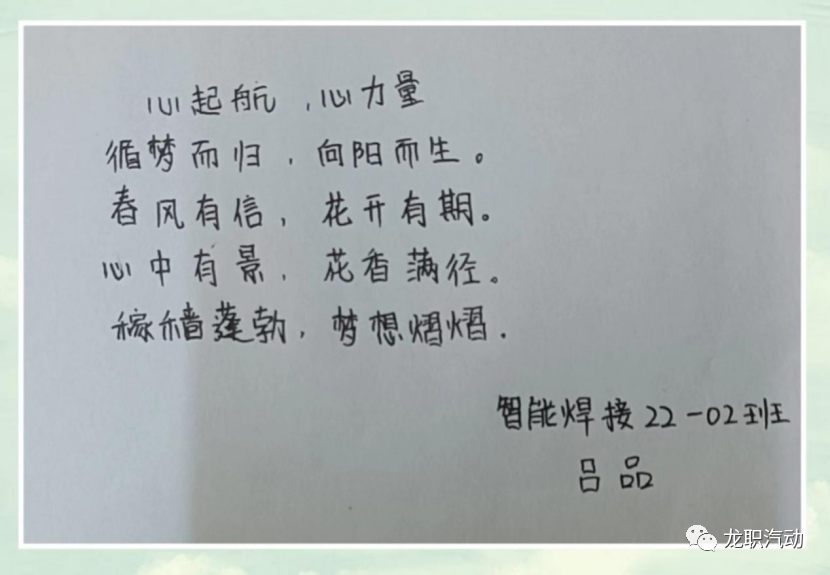 心起航,心力量
循梦而归,向阳而生。
春风有信,花开有期。
心中有景,花香满径。
稼穑蓬勃,梦想熠熠.
智能焊接22-02班
吕品
龙职汽动